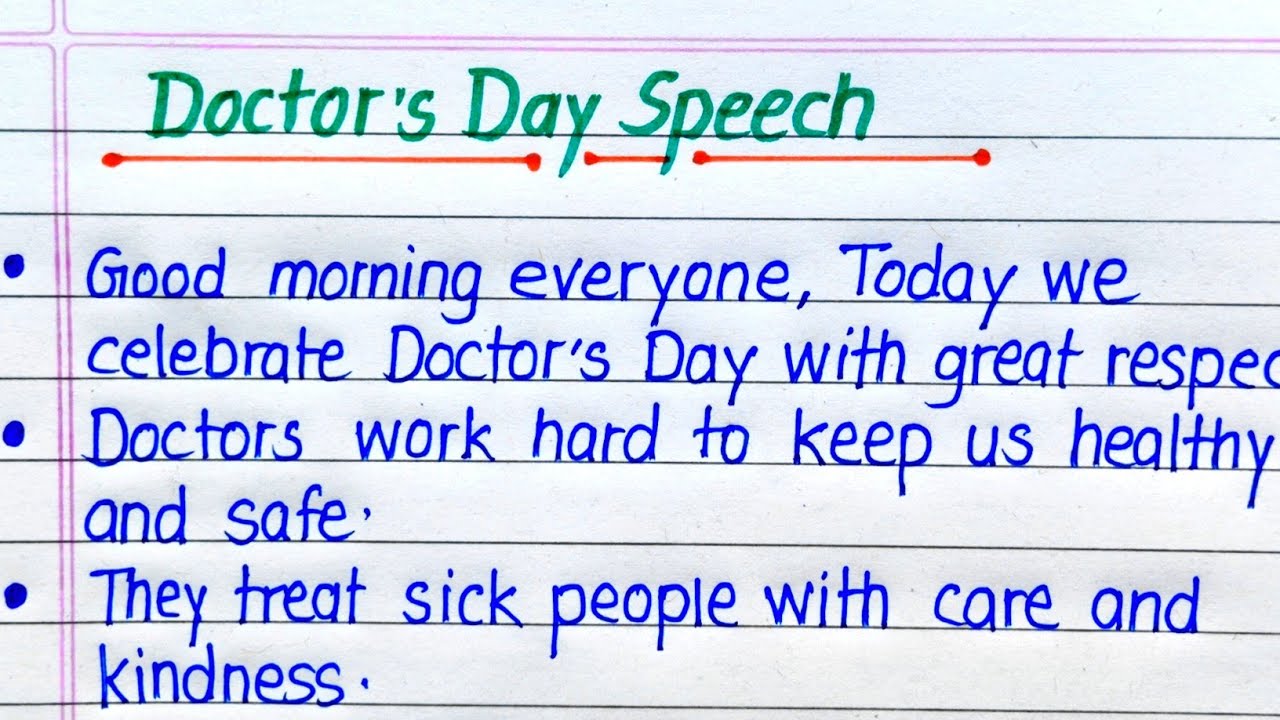 Doctor's Day Speech
• Good morning everyone, Today we
celebrate Doctor's Day with great respec
• Doctors work hard to keep us healthy
and safe.
• They treat sick people with care and
kindness.